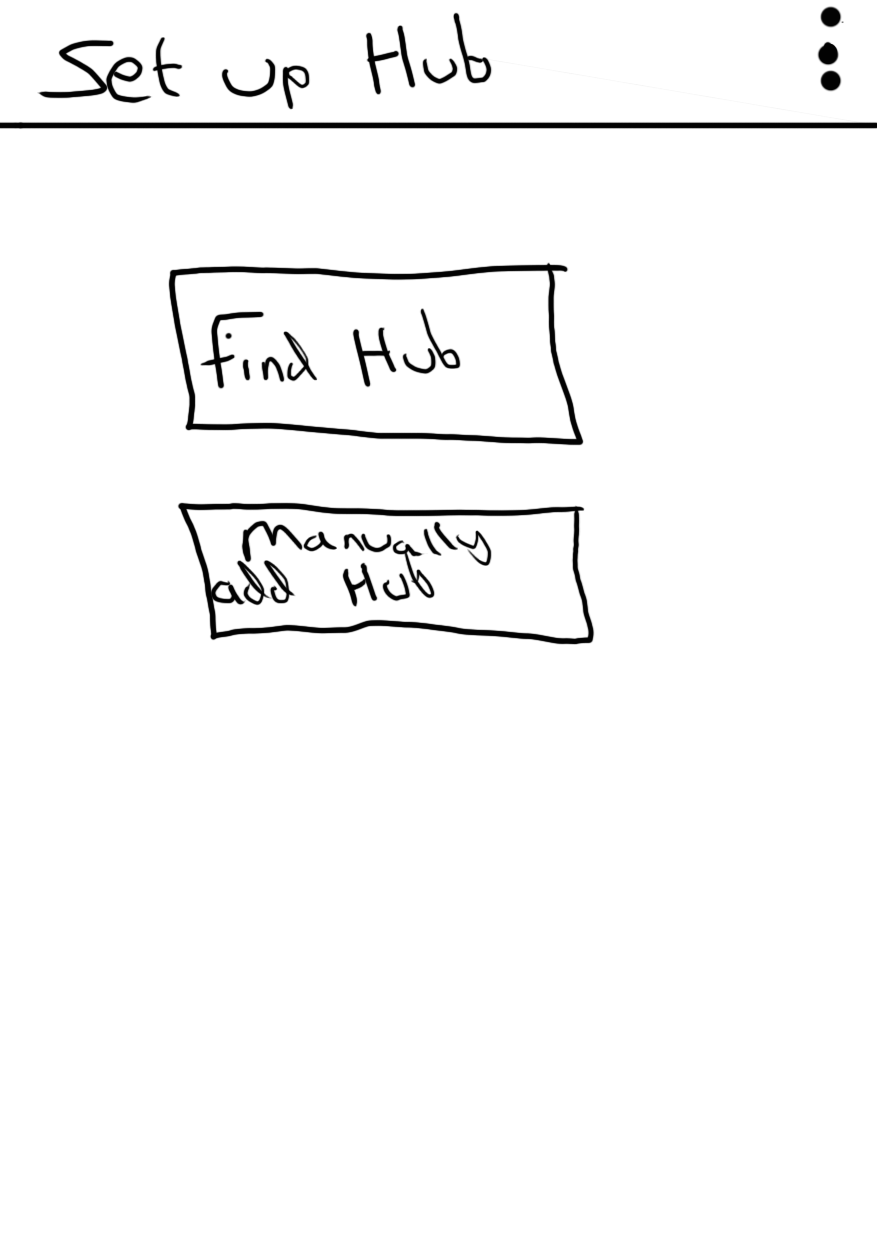 Set up Hub
Find Hub
Manually
add Hub